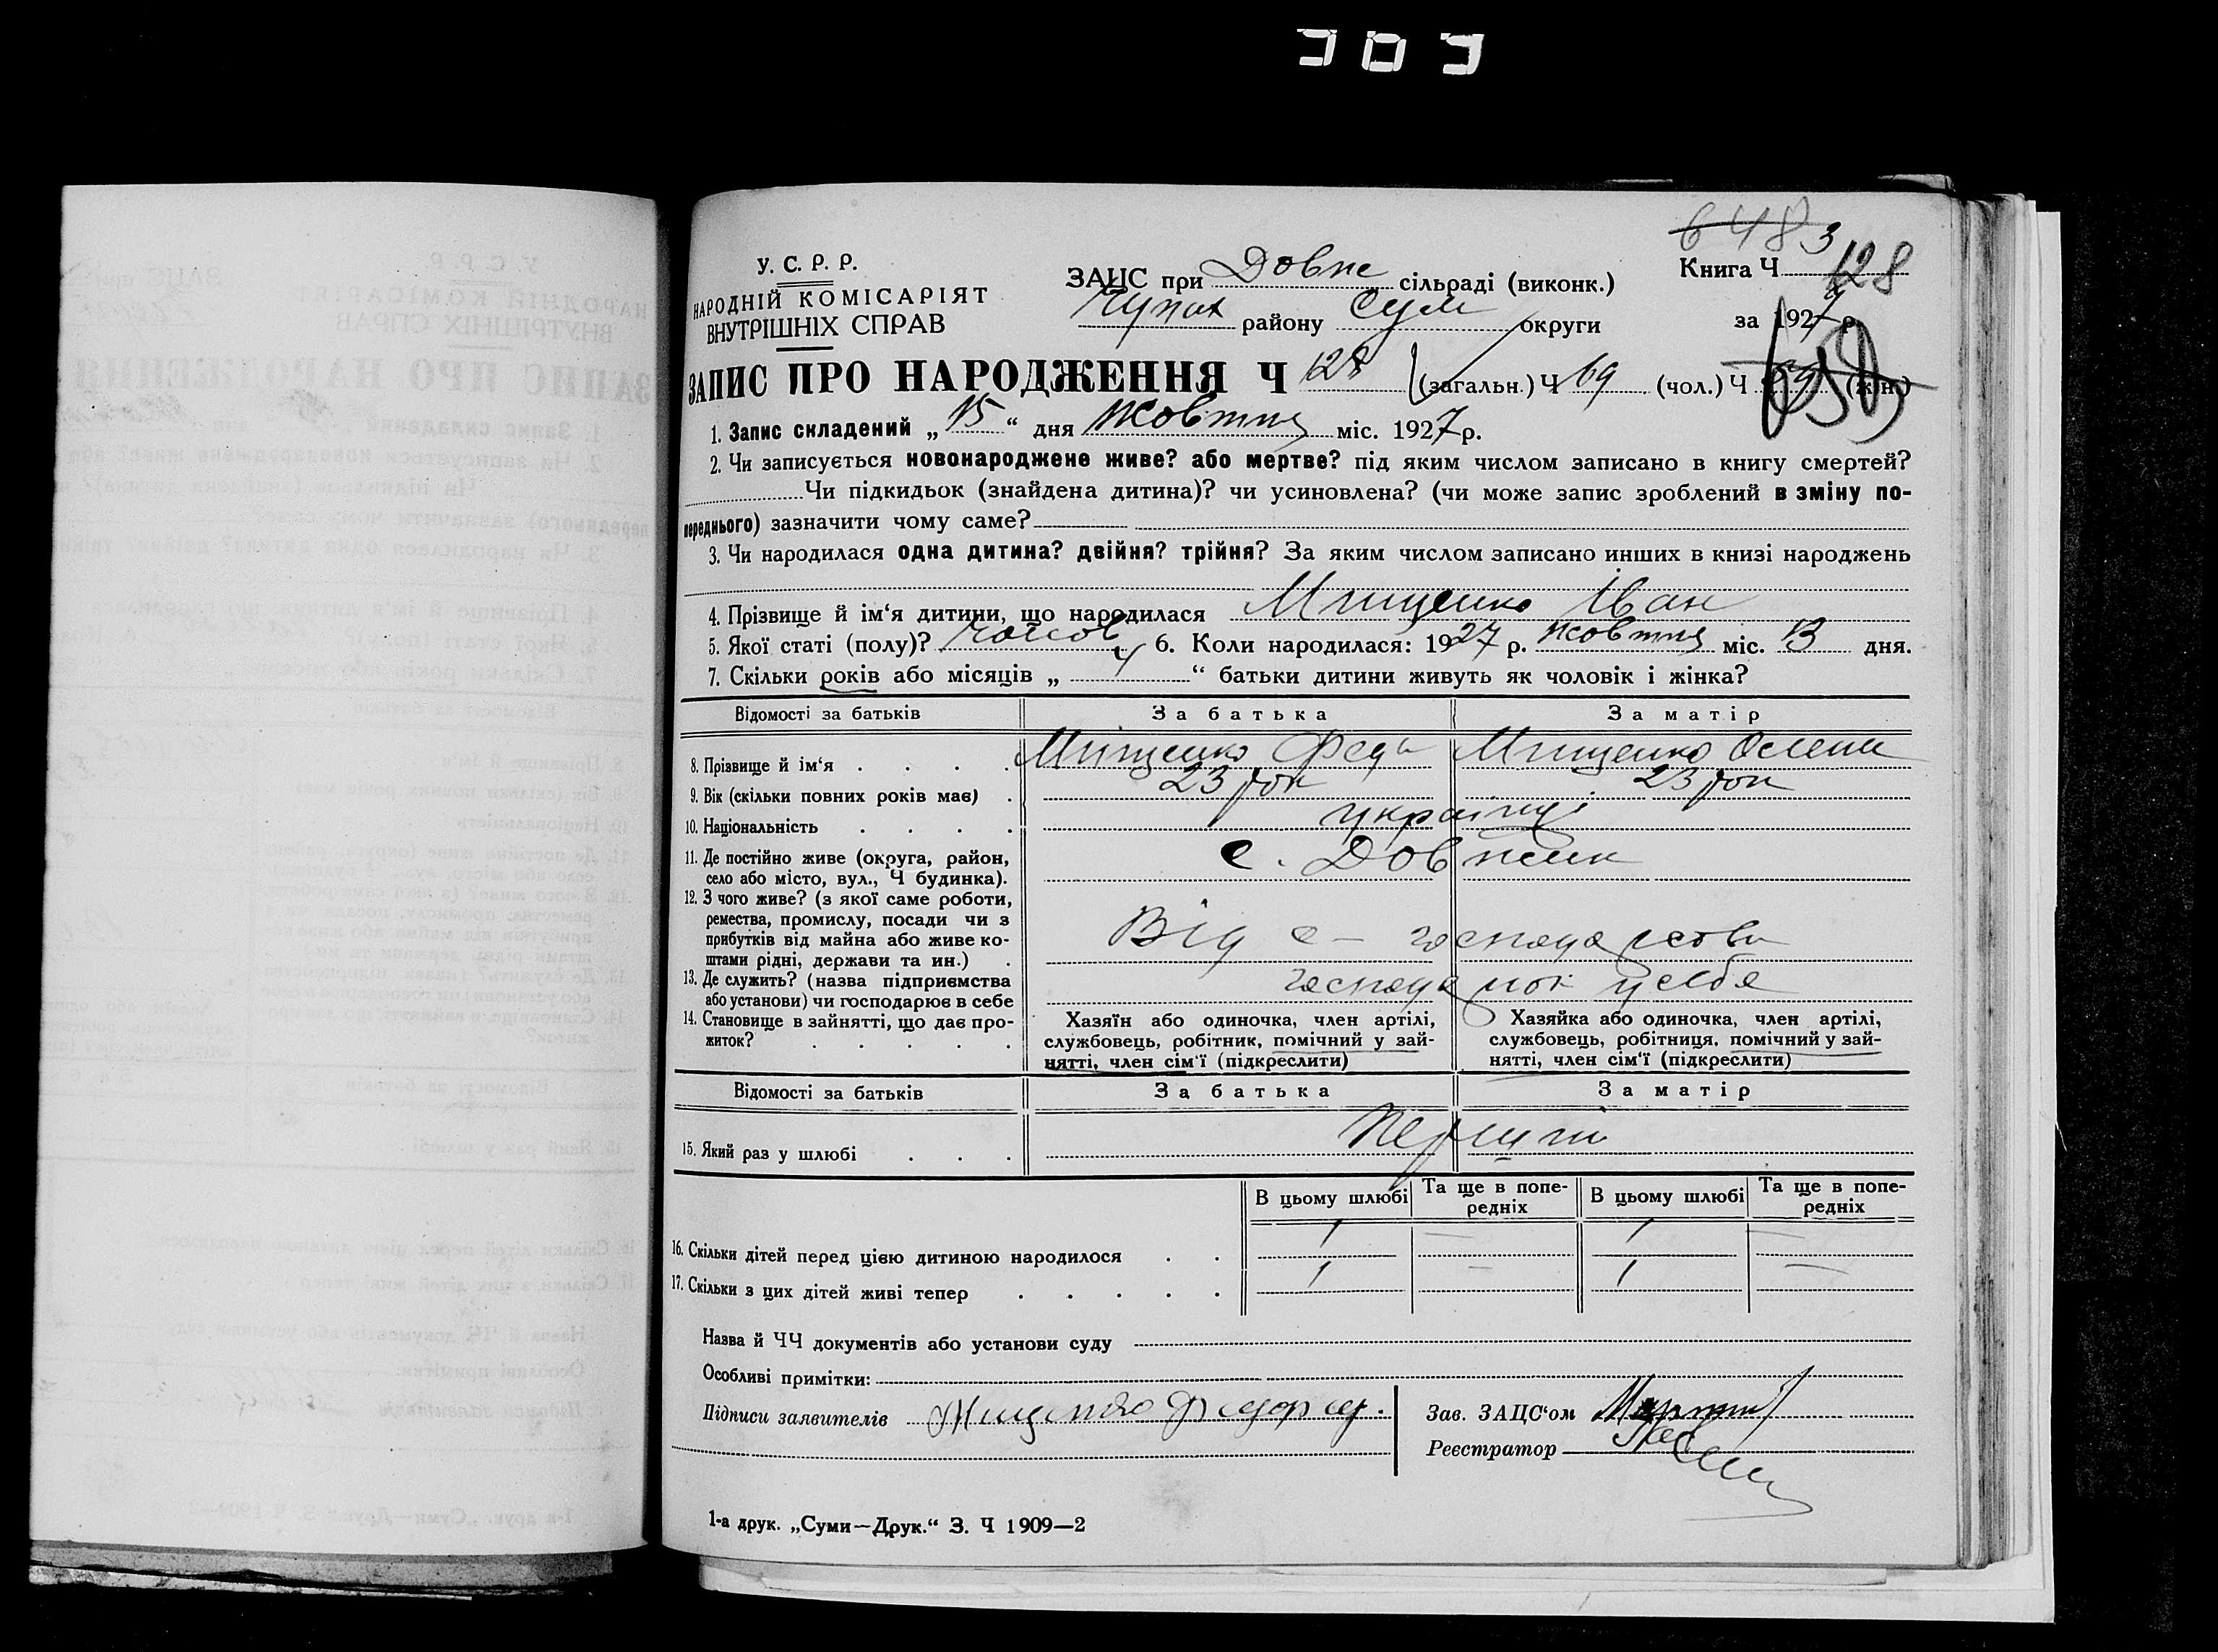 303
648
У. С. Р. Р.
НАРОДНІЙ КОМІСАРІЯТ
ВНУТРІШНІХ СПРАВ
ЗАЦС при Довж сільраді (виконк.)
Чупах району Сум округи
Книга Ч 3 128
за 1927 р.
ЗАПИС ПРО НАРОДЖЕННЯ Ч 128 (загальн.) Ч 69 (чол.) Ч (жін.)
1. Запис складений „ 15 “ дня Жовтня міс. 1927 р.
2. Чи записується новонароджене живе? або мертве? під яким числом записано в книгу смертей?
Чи підкидьок (знайдена дитина)? чи усиновлена? (чи може запис зроблений в зміну по-
переднього) зазначити чому саме?
3. Чи народилася одна дитина? двійня? трійня? За яким числом записано инших в книзі народжень
4. Прізвище й ім‘я дитини, що народилася Мищенко Іван
5. Якої статі (полу)? чолов 6. Коли народилася: 1927 р. жовтня міс. 13 дня.
7. Скільки років або місяців „ 4 “ батьки дитини живуть як чоловік і жінка?
Відомості за батьків За батька За матір
8. Прізвище й ім‘я . . . . Мищенко Федір Мищенко Олена
9. Вік (скільки повних років має) . 23 рок 23 рок
10. Національність . . . . українці
11. Де постійно живе (округа, район,
село або місто, вул., Ч будинка). с. Довжик
12. З чого живе? (з якої саме роботи,
ремества, промислу, посади чи з
прибутків від майна або живе ко-
штами рідні, держави та ин.) . Від с– господарства
13. Де служить? (назва підприємства
або установи) чи господарює в себе у себе
14. Становище в зайнятті, що дає про-
житок? . . . . .
Хазяїн або одиночка, член артілі,
службовець, робітник, помічний у зай-
нятті, член сім‘ї (підкреслити)
Хазяйка або одиночка, член артілі,
службовець, робітниця, помічний у зай-
нятті, член сім‘ї (підкреслити)
Відомості за батьків За батька За матір
15. Який раз у шлюбі . . . Перший
В цьому шлюбі Та ще в попе-
редніх В цьому шлюбі Та ще в попе-
редніх
16. Скільки дітей перед цією дитиною народилося . . 1 — 1 —
17. Скільки з цих дітей живі тепер . . . . . 1 — 1 —
Назва й ЧЧ документів або установи суду
Особливі примітки:
Підписи заявителів Мищенко Федор
Зав. ЗАЦС‘ом
Реєстратор
1-а друк. „Суми—Друк.“ З. Ч 1909—2